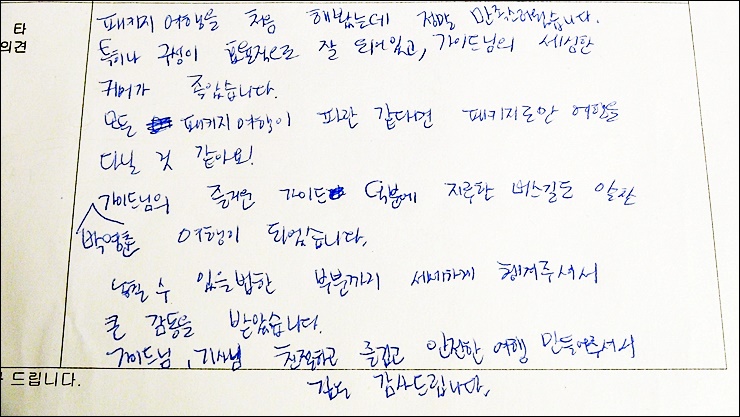 타
의견
패키지 여행을 처음 해봤는데 정말 만족스러웠습니다.
특히나 구성이 효율적으로 잘 되어있고, 가이드님의 세심한
케어가 좋았습니다.
모든 패키지 여행이 같다면 패키지로만 여행을
다닐 것 같아요!
가이드님의 즐거운 가이드 덕분에 지루한 버스길도 알찬
박영훈 여행이 되었습니다.
놓칠 수 있을법한 부분까지 세세하게 챙겨주셔서
큰 감동을 받았습니다.
가이드님, 기사님 친절하고 즐겁고 안전한 여행 만들어주셔서
드립니다.
감사드립니다.